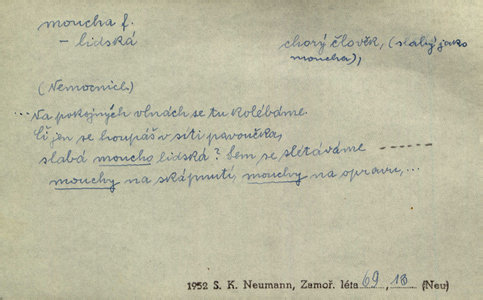 moucha f.
– lidská
chorý člověk, (slabý jako
moucha),
(Nemocnice)
... Na pokojných vlnách se tu kolébáme.
Či jen se houpáš v síti pavoučka,
slabá moucho lidská? Sem se slétáváme ------
mouchy na skápnutí, mouchy na opravu, ...
1952 S. K. Neumann, Zamoř. léta 69, 18 (Neu)